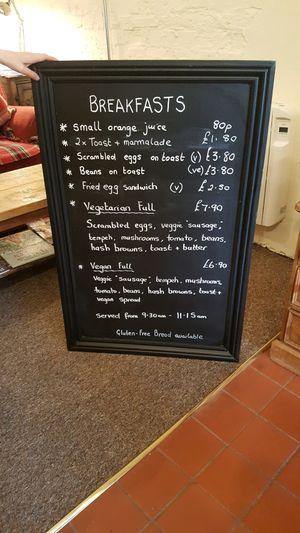 BREAKFASTS
* Small orange juice 80p
* 2x Toast + marmalade £1.80
* Scrambled eggs on toast (v) £3.80
* Beans on toast (ve) £3.80
* Fried egg Sandwich (v) £2.50
* Vegetarian Full £7.90
Scrambled eggs, veggie 'sausage',
tempeh, mushrooms, tomato, beans,
hash browns, toast + butter
* Vegan Full £6.90
Veggie 'sausage', tempeh, mushrooms,
tomato, beans, hash browns, toast +
vegan spread
served from 9.30am - 11.15am
Gluten-Free Bread available